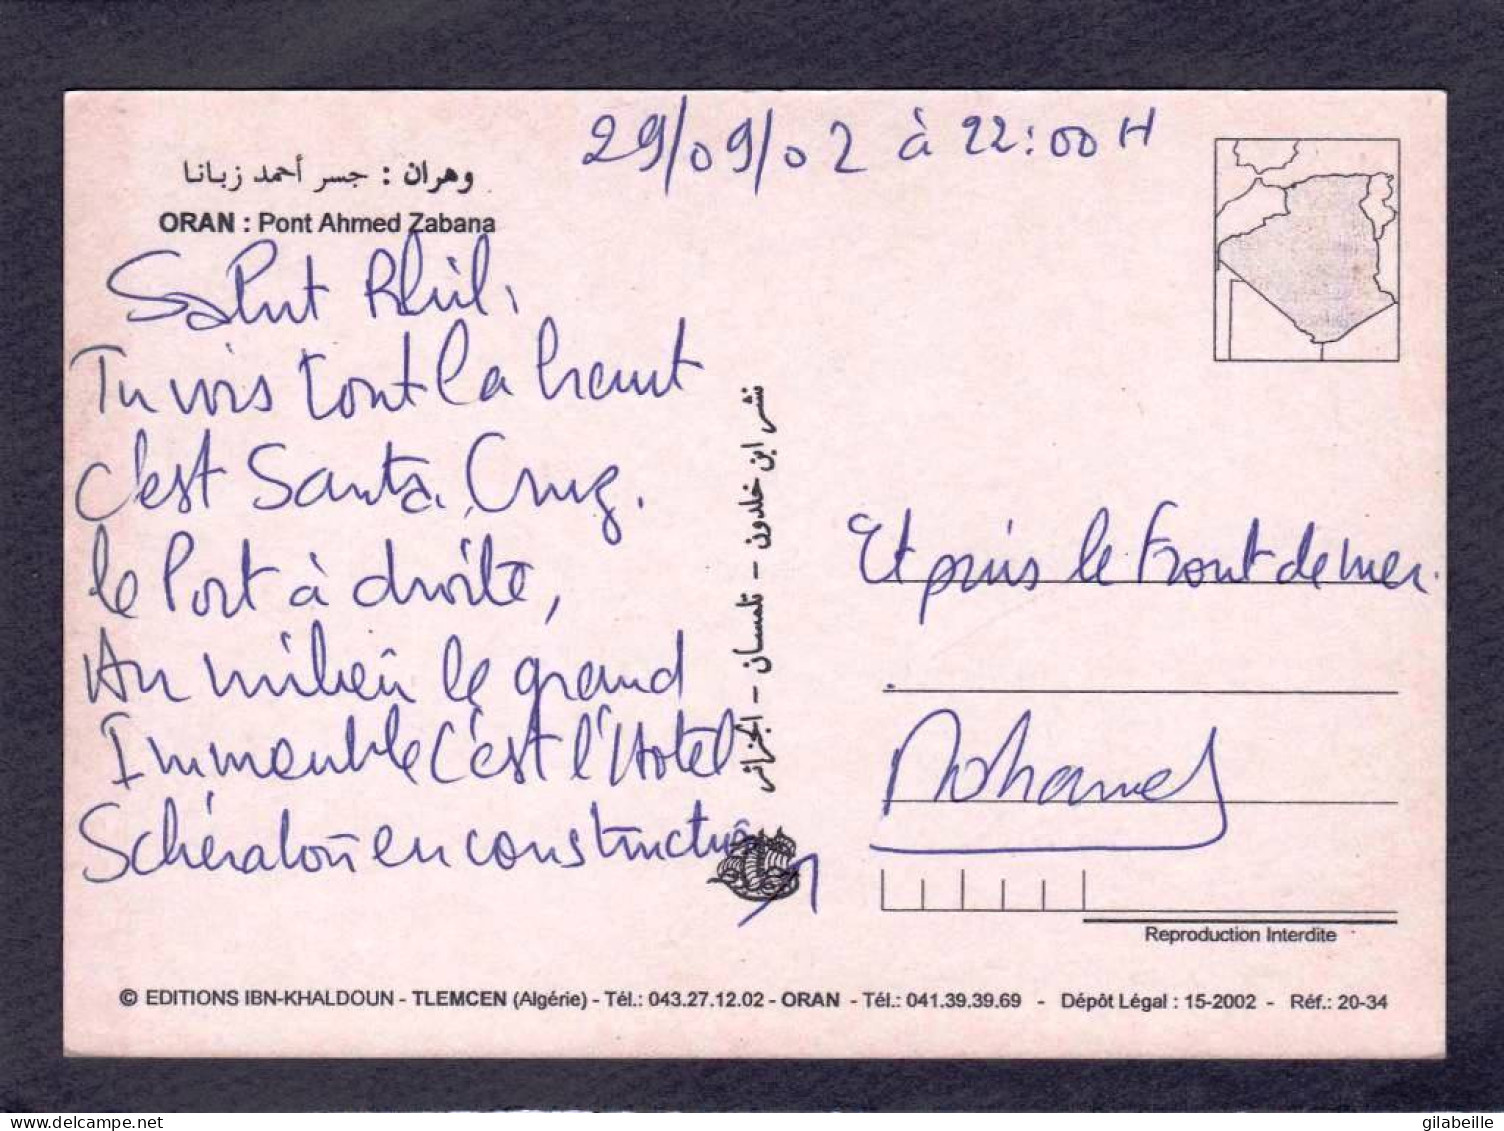 29/09/02 à 22:00 H
وهران : جسر أحمد زبانا
ORAN : Pont Ahmed Zabana
Salut
Tu vois tout la haut
c'est Santa Cruz.
le Port à droite,
Au milieu le grand
Immeuble c'est l'Hotel
Schératon en construction
Et puis le Front de mer.
Mohamed
نشر ابن خلدون - تلمسان - الجزائر
Reproduction Interdite
© EDITIONS IBN-KHALDOUN - TLEMCEN (Algérie) - Tél.: 043.27.12.02 - ORAN - Tél.: 041.39.39.69 - Dépôt Légal : 15-2002 - Réf.: 20-34
gilabeille